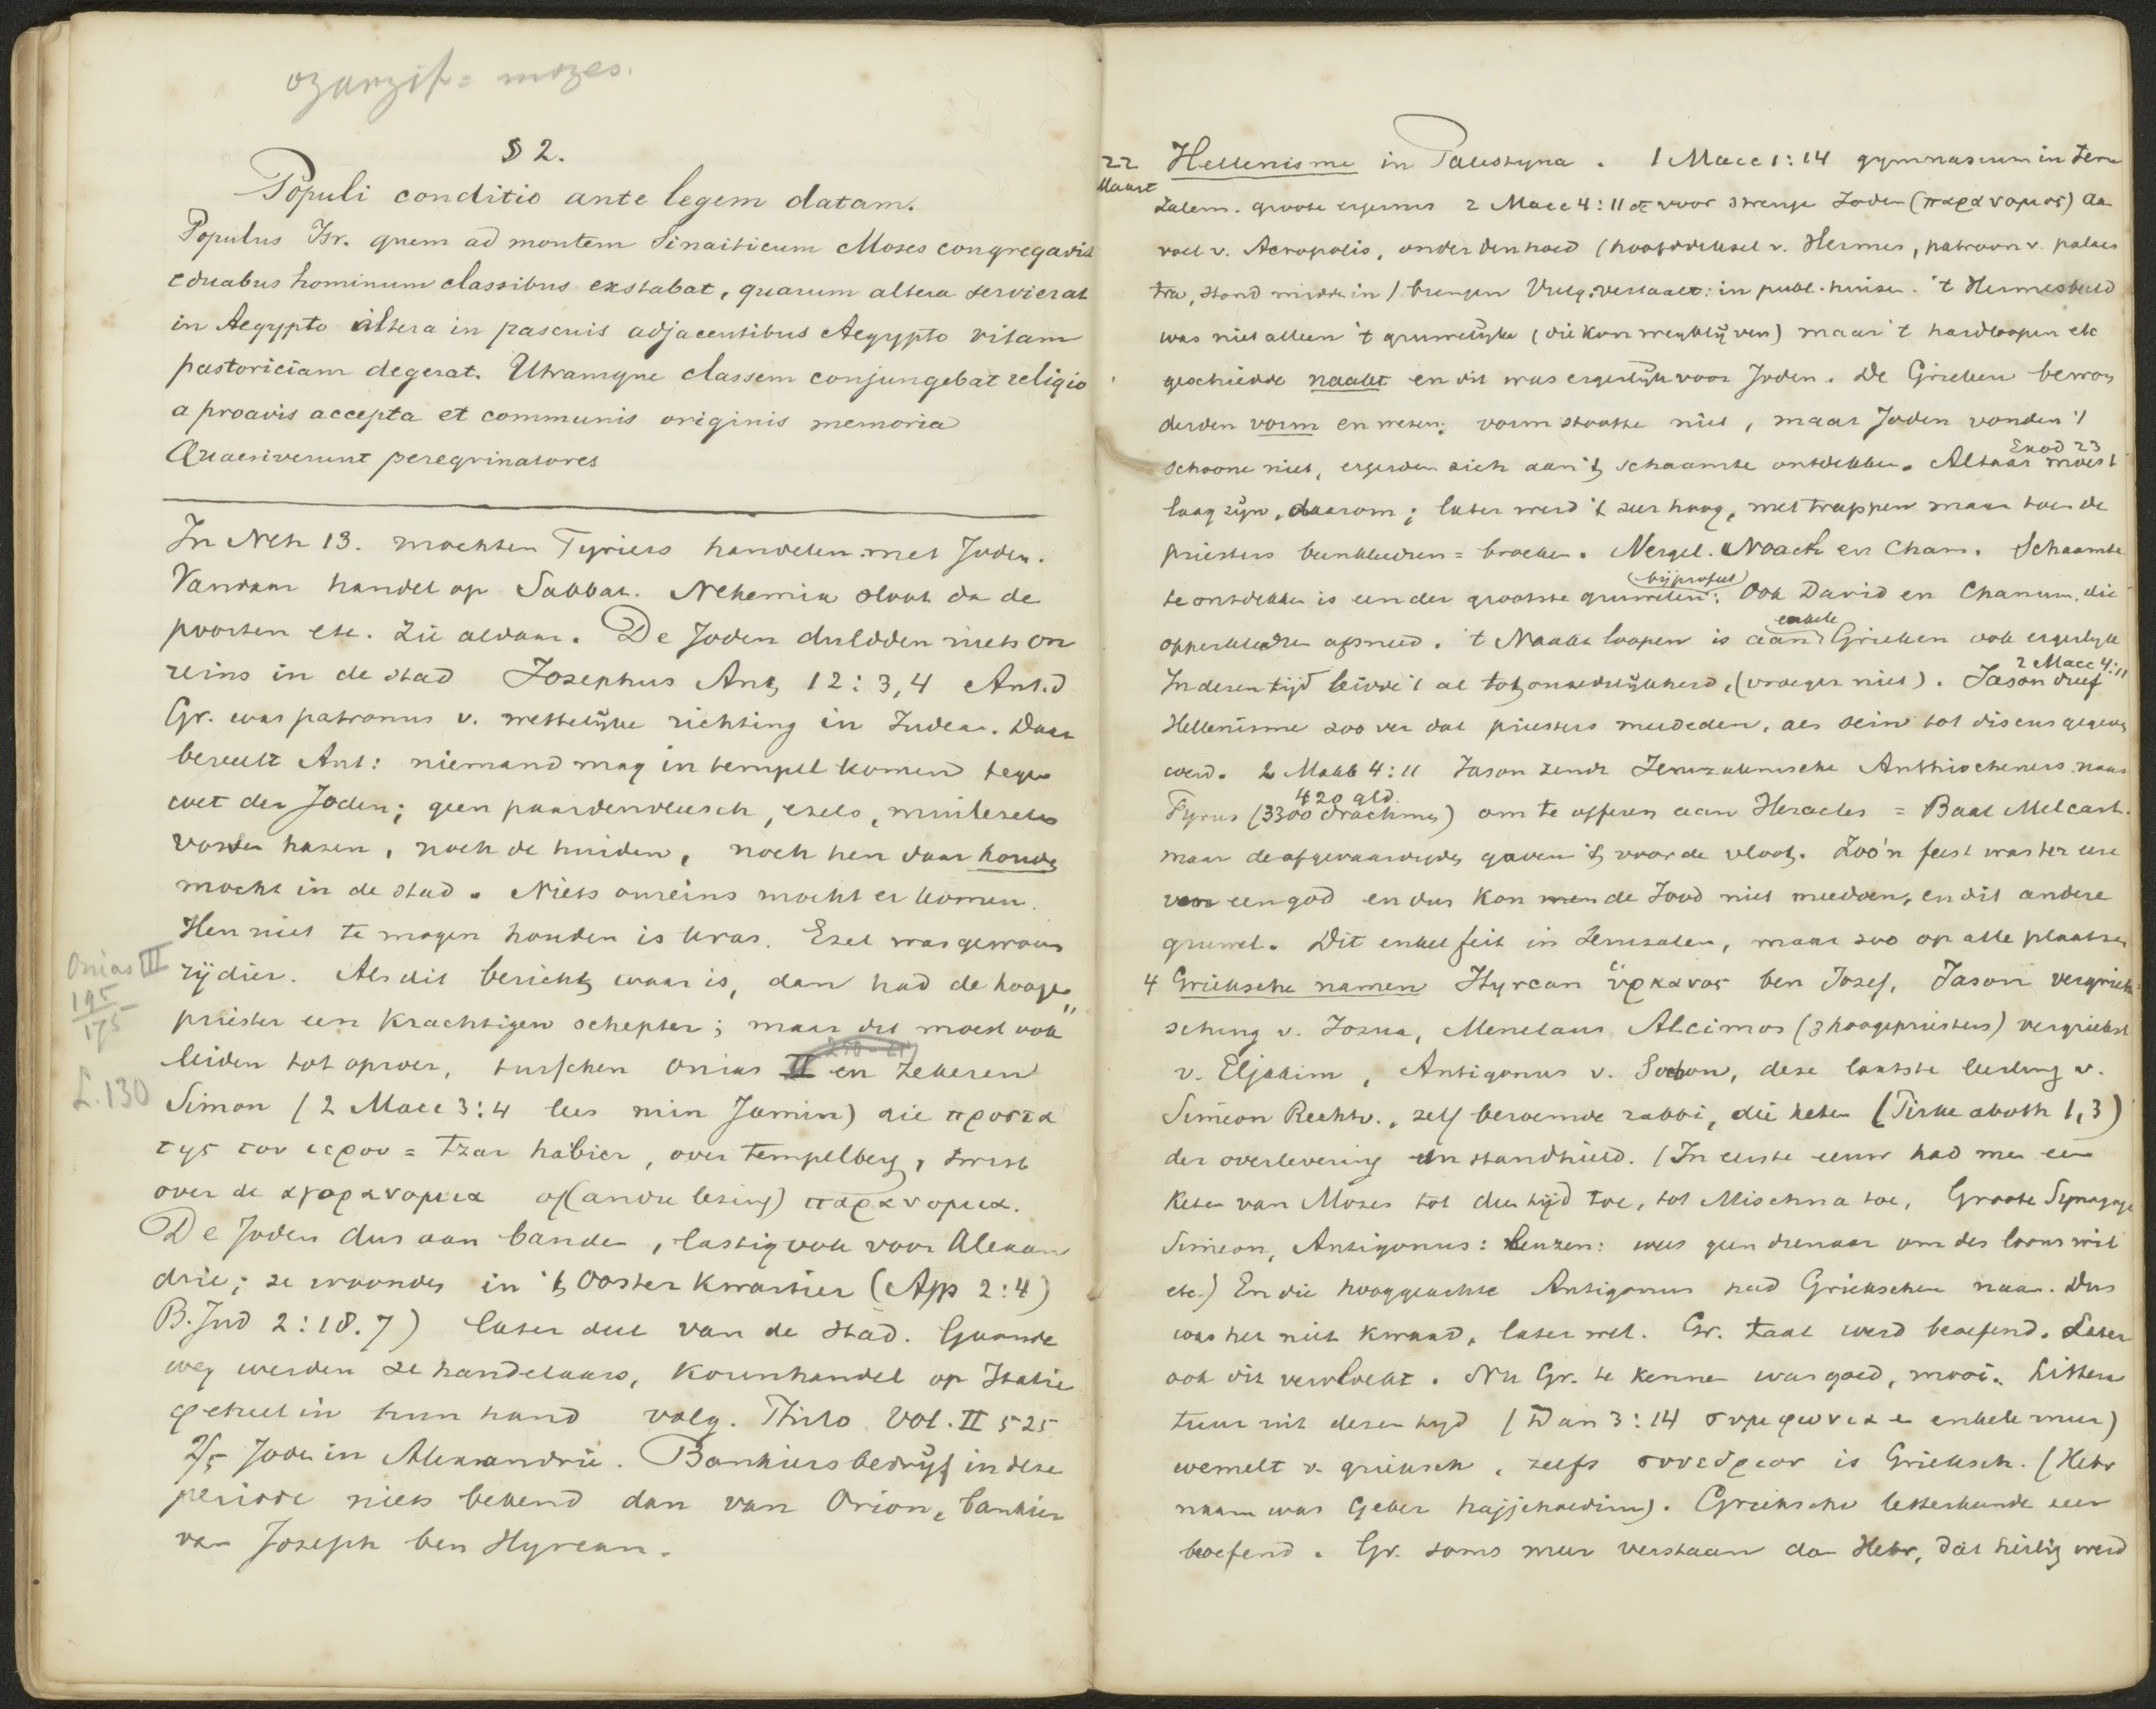 ozarzif = mozes.
§ 2.
Populi conditio ante legem datam.
Populus Isr. quem ad montem Sinaiticum Moses congregavit
e duabus hominum classibus exstabat, quarum altera servierat
in Aegypto altera in pascuis adjacentibus Aegypto vitam
pastoriciam degerat. Utramque classem conjungebat religio
a proavis accepta et communis originis memoria
Quaesiverunt peregrinatores
In Neh 13. mochten Tyriers handelen met Joden.
Vandaar handel op Sabbat. Nehemia sloot da de
poorten etc. Zie aldaar. De Joden duldden niets on
reins in de stad Josephus Ant 12:3,4 Ant. d
Gr. was patronus v. wettelijke richting in Judea. Daar
beveelt Ant: niemand mag in tempel komen tegen
wet der Joden; geen paardenvleesch, ezels, muilezels
vossen hazen, noch de huiden, noch hen daar houden
mocht in de stad. Niets onreins mocht er komen.
Hen niet te mogen houden is kras. Ezel was gewoon
Onias III
195
175
rijdier. Als dit bericht waar is, dan had de hooge
priester een krachtigen schepter; maar dit moest ook
leiden tot oproer, tusschen Onias II en zekeren
L. 130
Simon (2 Macc 3:4 lees min Jamin) die προστα
της του ιερου = tzar habier, over tempelberg, twist
over de αγορανομια of (andre lezing) παρανομια.
De Joden dus aan banden, lastig ook voor Alexan
drie; ze woonden in 't Ooster kwartier (App 2:4)
B. Jud 2:18.7) later deel van de stad. Gaande
weg werden ze handelaars, korenhandel op Italie
geheel in hun hand volg. Philo Vol. II 525
2/5 Joden in Alexandrie. Bankiersbedrijf in deze
periode niets bekend dan van Orion, bankier
van Joseph ben Hyrcan.
22
Maart
Hellenisme in Palestyna. 1 Macc 1:14 gymnasium in Jeru
zalem. groote ergernis 2 Macc 4:11 voor strenge Joden (παρανομος) aan
voet v. Acropolis, onder den hoed (hoofddeksel v. Hermes, patroon v. palaes
tra, stond midden in) brengen Vulg. vertaalt: in publ. huizen. 't Hermesbeeld
was niet alleen 't gruwelijke (die kon wegblijven) maar 't hardloopen etc
geschiedde naakt en dit was ergerlijk voor Joden. De Grieken bewon
derden vorm en wezen; vorm stootte niet, maar Joden vonden 't
Exod 23
schoone niet, ergerden zich aan 't schaamte ontdekken. Altaar moest
laag zijn, daarom; later werd 't zeer hoog, met trappen maar toen de
priesters beenkleeren = broeken. Vergel. Noach en Cham. Schaamte
(bij profeet)
te ontdekken is een der grootste gruwelen: Ook David en Chanun, die
enkele
opperkleeren afsneed. 't Naakt loopen is aan Grieken ook ergerlijk
2 Macc 4:11
In dezen tijd leidde 't al tot onzedelijkheid, (vroeger niet). Jason dreef
Hellenisme zoo ver dat priesters meededen, als sein tot discus gegeven
werd. 2 Makk 4:11 Jason zendt Jeruzalemsche Antiocheners naar
420 gld.
Tyrus (3300 drachmen) om te offeren aan Heracles = Baal Melcart.
maar de afgevaardigden gaven 't voor de vloot. Zoo'n feest was ter eere
van een god en dus kon men de Jood niet meedoen, en dit andere
gruwel. Dit enkel feit in Jeruzalem, maar zoo op alle plaatsen
4 Grieksche namen Hyrcan ὑρκανος ben Josef, Jason vergriek
sching v. Jozua, Menelaus Alcimos (3 hoogepriesters) vergriekst
v. Eljakim, Antigonus v. Sochow, deze laatste leerling v.
Simeon Rechtv., zelf beroemde rabbi, die keten (Pirke aboth 1,3)
der overlevering in stand hield. (In eerste eeuw had men een
keten van Moses tot den tijd toe, tot Mischna toe, Groote Synagoge
Simeon, Antigonus: leuzen: wees geen dienaar om des loons wil
etc.) En die hooggeachte Antigonus had Griekschen naam. Dus
was het niet kwaad, later wel. Gr. taal werd beoefend. Later
ook dit vervloekt. Nu Gr. te kennen was goed, mooi. Littera
tuur uit dezen tijd (Dan 3:14 συμφωνια en enkele meer)
wemelt v. grieksch, zelfs συνεδριον is Grieksch. (Hebr
naam was Geber hajjehoedim). Grieksche letterkunde zeer
beoefend. Gr. soms meer verstaan dan Hebr, dat heilig werd